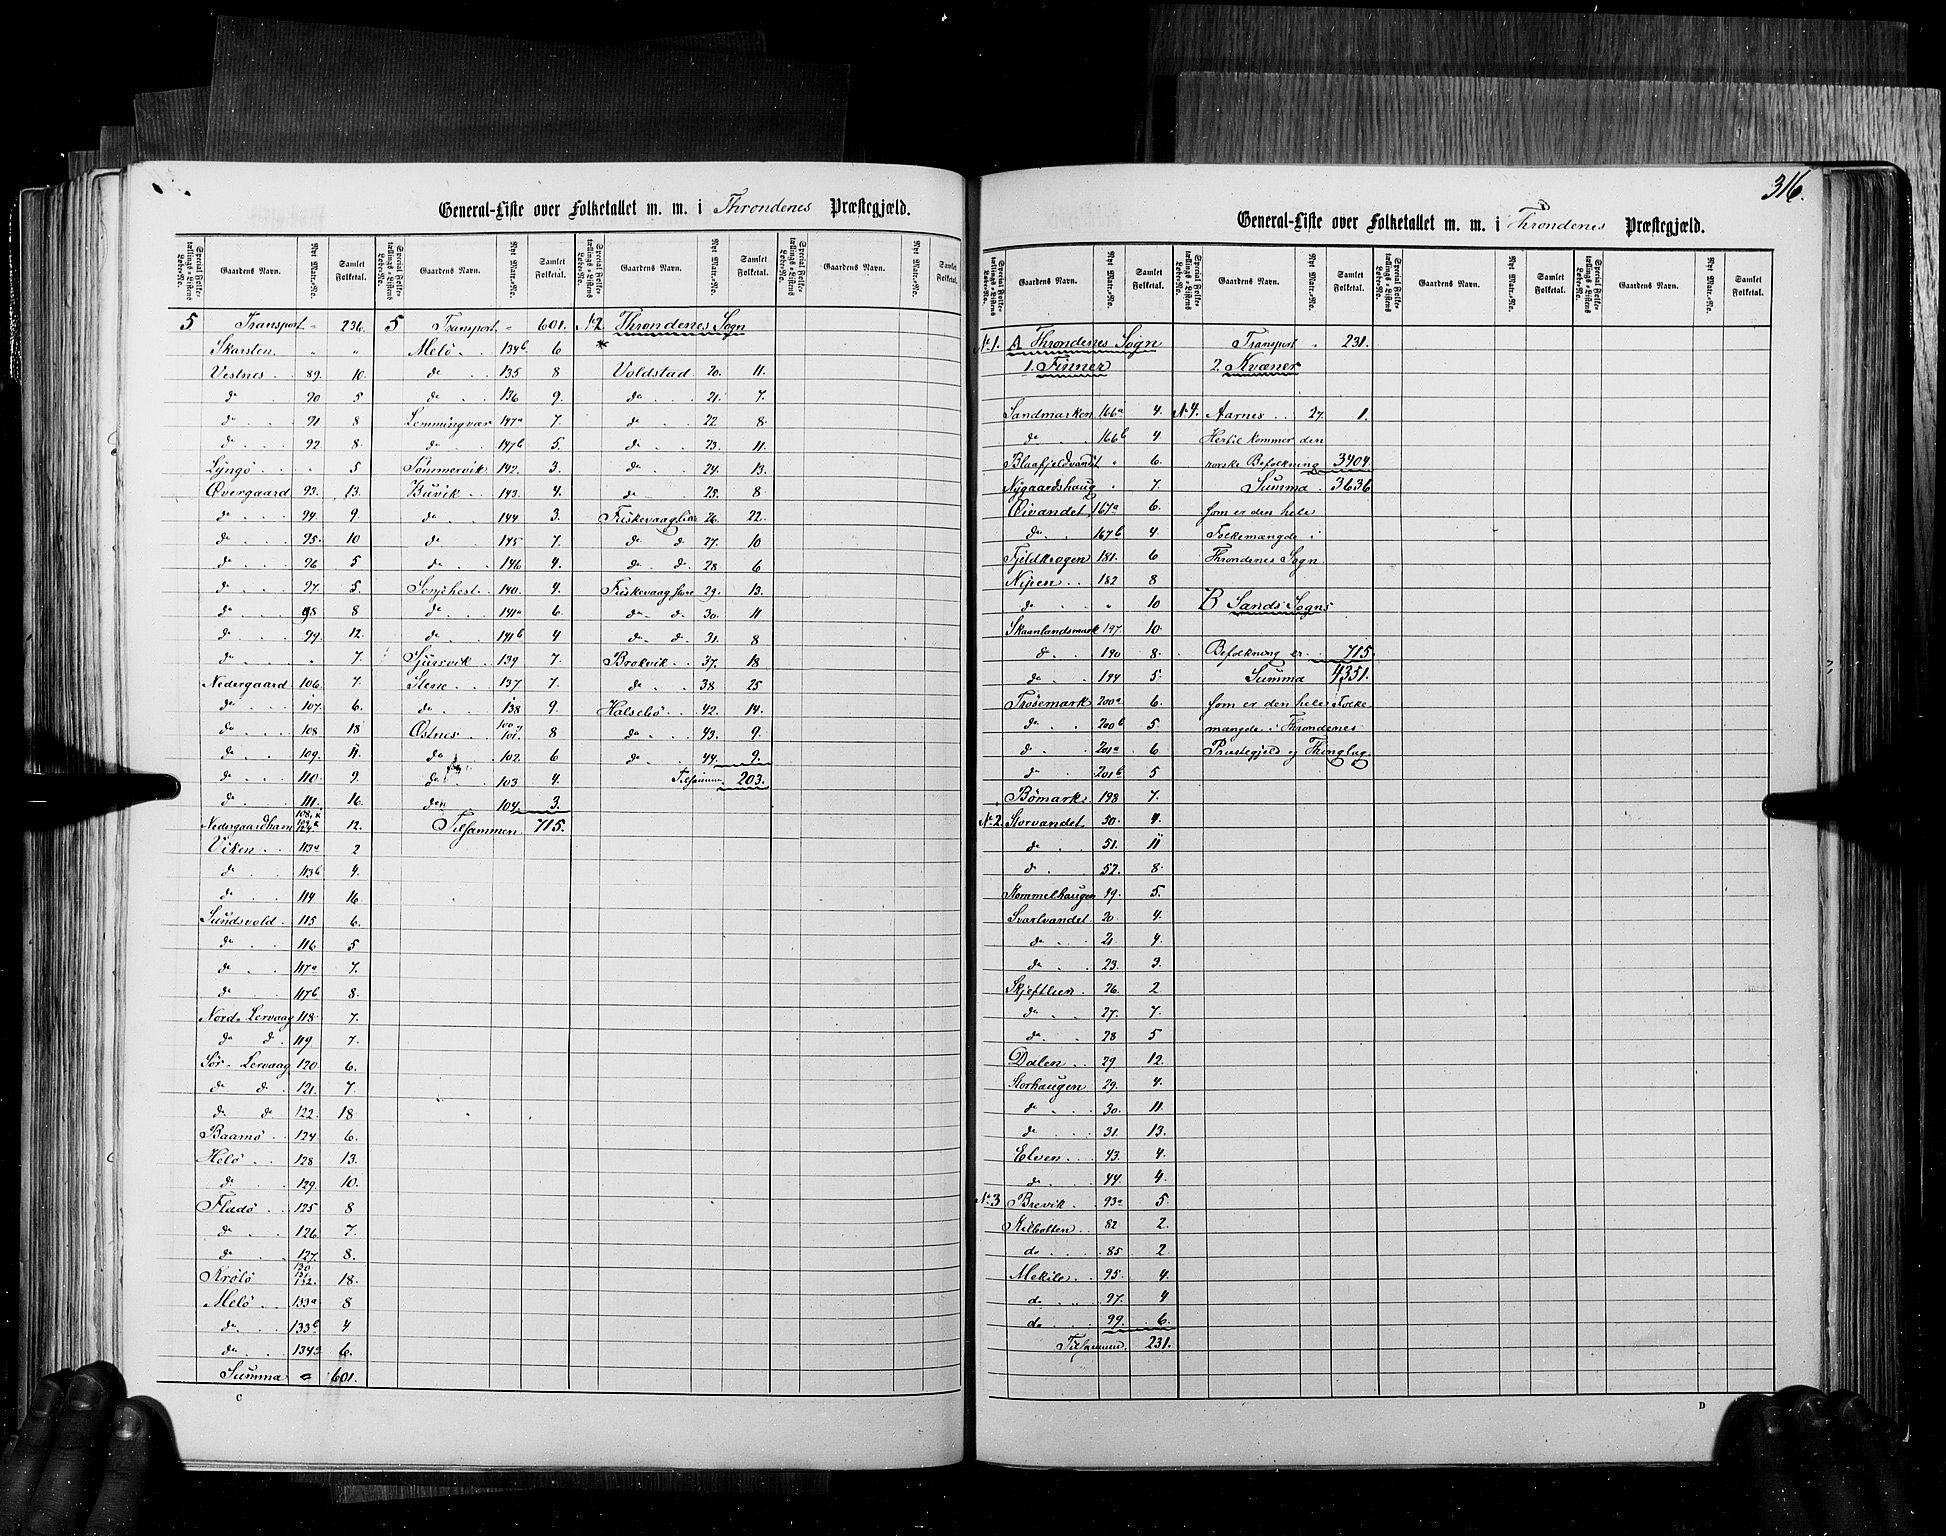 General-Liste over Folketallet m. m. i Throndenes Præstegjæld.
Special Folketællings-Listens Løbe-No. Gaardens Navn. Nyt Matr.-No. Samlet Folketal.
5 Transport " 236.
Skarsten. " " 
Vestnes 89. 10.
do 90 5
do 91 8
do 92 8.
Lyngö " 5
Øvergaard 93. 13.
do 94. 9.
do 95. 10
do 96 5
do 97. 5.
do 98 8
do 99. 12.
do " 7.
Nedergaard 106. 7.
do 107. 6.
do 108 18
do 109. 11
do 110 9.
do 111. 16.
Nedergaardhavn 12.
Viken 113a 2
do 113b 4.
do 114 16
Sundsvold 115 6.
do 116. 5
do 117a 7.
do 117b 8.
Nord-Lervaag 118 7.
do d. 119 7.
Sör-Lervaag 120 6.
do d. 121. 7.
do do 122. 18
Baamö 124 6.
Helö 128 13.
do 129. 10.
Fladö 125 8
do 126. 7.
do 127. 8.
Krölö 130 131 132. 18.
Melö 133a 8
do 133b 4
do 134a 6.
Summa " 601.
C
5 Transport " 601.
Melö 134b 6
do 135 8
do 136 9.
Lemmingvær 147a 7.
do 147b 5.
Tömmervik 142. 3.
Buvik 143. 4.
do 144 3.
do 145 7.
do 146 4.
Senjehest 140. 4.
do 141a 6.
do 141b 4
Sjursvik 139 7.
Stene 137 7.
do 138 9.
Østnes 100 og 101. 8
do 102. 6
do 103 4.
do 104. 3.
Tilsammen 715.
No 2 Throndenes Sogn
*
Voldstad 20. 11.
do 21. 7.
do 22 8.
do 23. 11.
do 24. 13.
do 25. 8
Fiskevaaglien 26. 22.
do d. 27. 10
do d. 28 6
Fiskevaag 29. 13.
do d. 30. 11
do d. 31. 8
Brokvik 37. 18
do 38 25
Halsebö 42. 14.
do 43. 9.
do 44. 9.
Tilsammen 203.
316.
General-Liste over Folketallet m. m. i Throndenes Præstegjæld.
Special Folketællings-Listens Løbe-No. Gaardens Navn. Nyt Matr.-No. Samlet Folketal.
No 1. A Throndenes Sogn
1. Finner
Sandmarken 166a 4.
do 166b 4
Blaafjeldvandet " 6.
Nygaardshaug " 7.
Øivandet 167a 6.
do 167b 4
Fjeldkrogen 181. 6
Nipen 182 8
do " 10
Skaanlandsmark 197. 10.
d. 190 8.
do 194 5.
Trösemark 200a 6.
do 200b 5.
d. 201a 6
do 201b 5
Bömark 198 7.
No 2. Storvandet 50. 4.
do 51. 11
do 52. 8.
Rommelhaugen 49. 5.
Svartvandet 20. 4.
do 21 4.
do 23. 3.
Skjeftlien 26. 2
do 27. 7.
do 28 5
Dalen 29. 12.
Storhaugen 29. 4.
do 30. 11.
do 31. 13.
Elven 43. 4.
do 44 4.
No 3 Brevik 93a 5
Kilbotten 82 2.
do 85 2.
Mekile 95. 4
do 97. 4
do 99. 6.
Tilsammen 231.
Transport " 231.
2. Kvæner
No 4. Aarnes 27 1.
Hertil kommer den
norske Befolkning 3404.
Summa 3636
som er den hele
Folkemængde i
Throndenes Sogn
B Sands Sogns
Befolkning er 715.
Summa 4351.
som er den hele Folke
mængde i Throndenes
Præstegjeld og Thinglag.
D